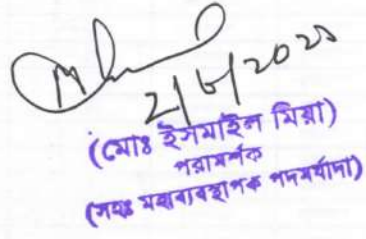 (মোঃ ইসমাইল মিয়া)
পরামর্শক
(সহঃ মহাব্যবস্থাপক পদমর্যাদা)